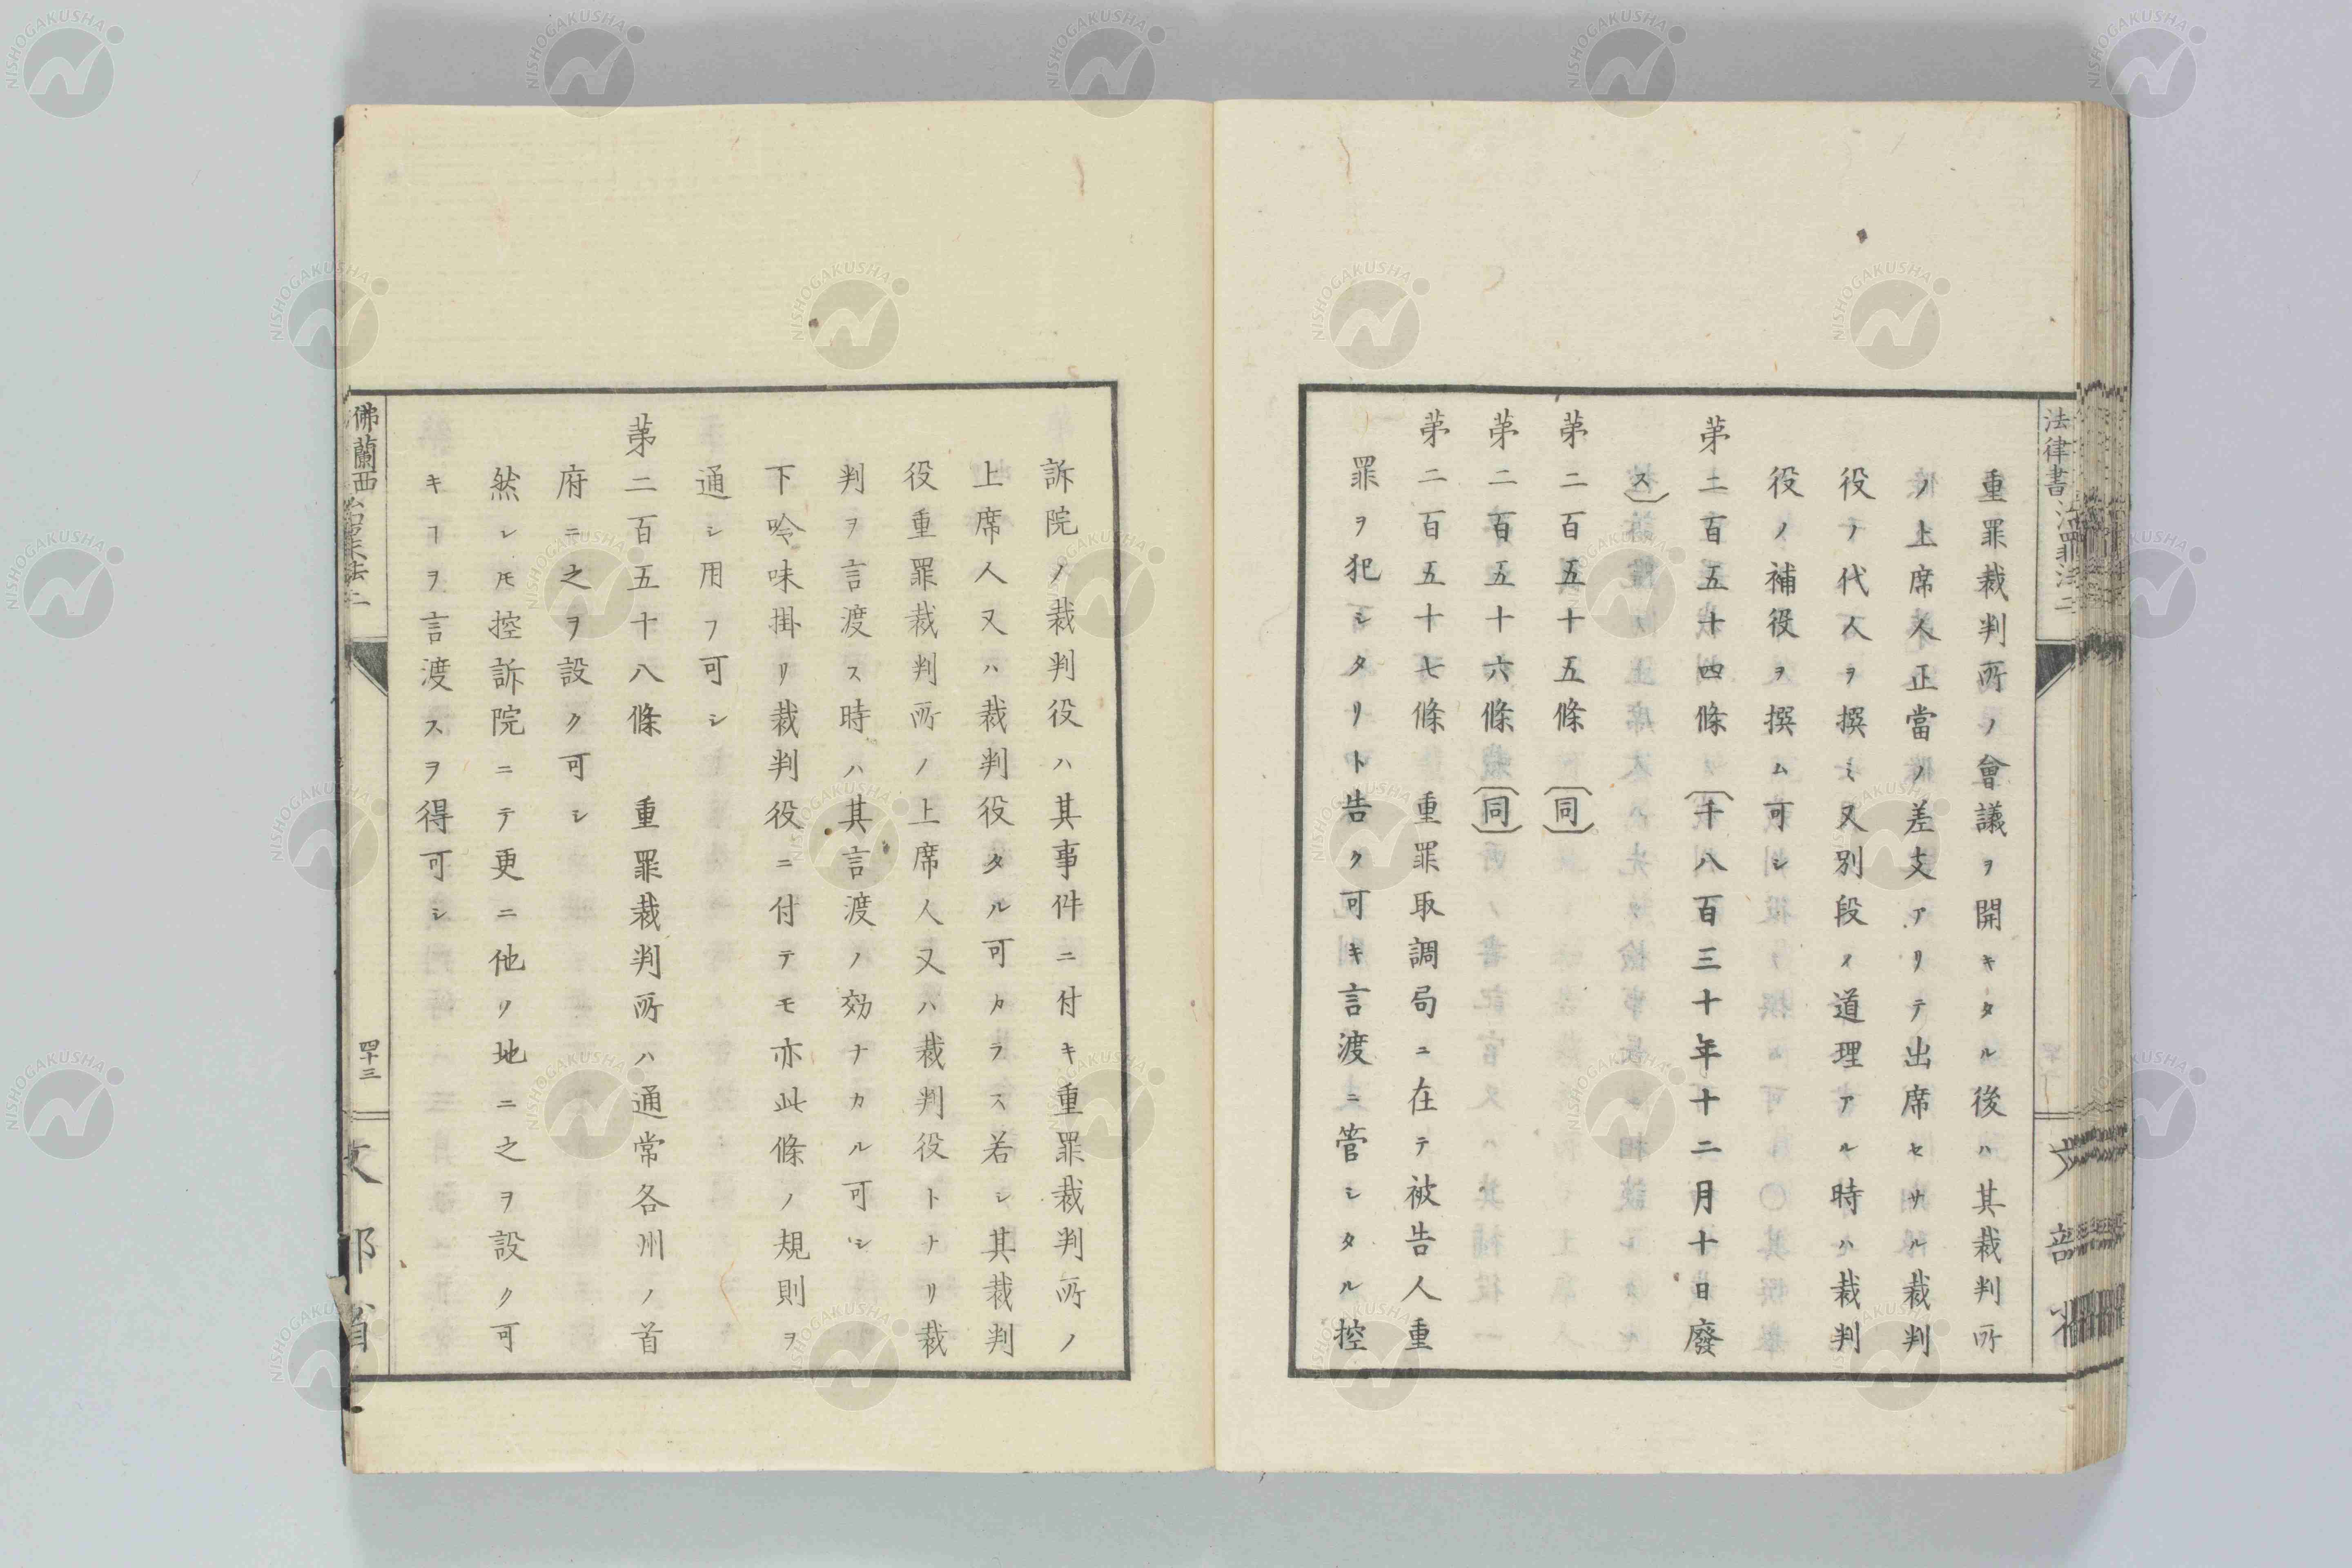 重罪裁判所ノ會議ヲ開キタル後ハ其裁判所
ノ上席人正當ノ差支アリテ出席セサル裁判
役ノ代人ヲ撰ミ又別段ノ道理アル時ハ裁判
役ノ補役ヲ撰ム可シ
苐二百五十四條 (千八百三十年十二月十日廢
ス)
苐二百五十五條 (同)
苐二百五十六條 (同)
苐二百五十七條 重罪取調局ニ在テ被告人重
罪ヲ犯シタリト告ク可キ言渡ニ管シタル控
訴院ノ裁判役ハ其事件ニ付キ重罪裁判所ノ
上席人又ハ裁判役タル可カラス若シ其裁判
役重罪裁判所ノ上席人又ハ裁判役トナリ裁
判ヲ言渡ス時ハ其言渡ノ効ナカル可シ
下吟味掛リ裁判役ニ付テモ亦此條ノ規則ヲ
通シ用フ可シ
苐二百五十八條 重罪裁判所ハ通常各州ノ首
府ニ之ヲ設ク可シ
然シ𪜈控訴院ニテ更ニ他ノ地ニ之ヲ設ク可
キヿヲ言渡スヲ得可シ
法律書 治罪法二
文部省
佛蘭西 治罪法二
四十三
文部省
NISHOGAKUSHA